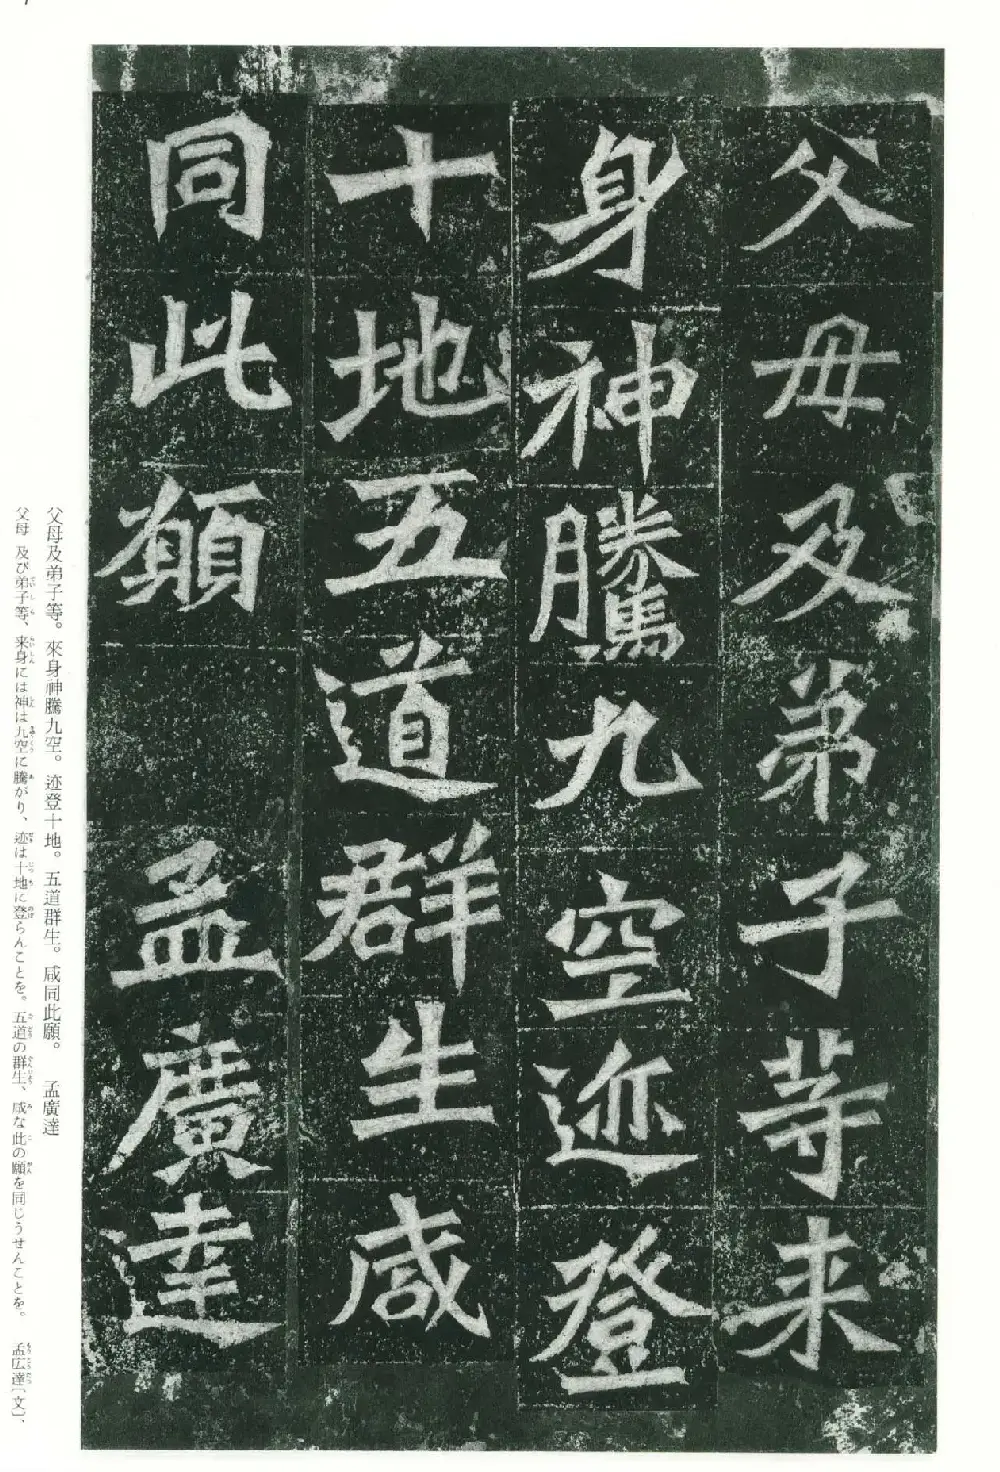 父母及弟子等来
身神騰九空迹登
十地五道群生咸
同此願　孟廣達
父母及弟子等。來身神騰九空。迹登十地。五道群生。咸同此願。　孟廣達
父母 及び弟子等、来身には神は九空に騰がり、迹は十地に登らんことを。五道の群生、咸な此の願を同じうせんことを。　孟広達〔文〕、